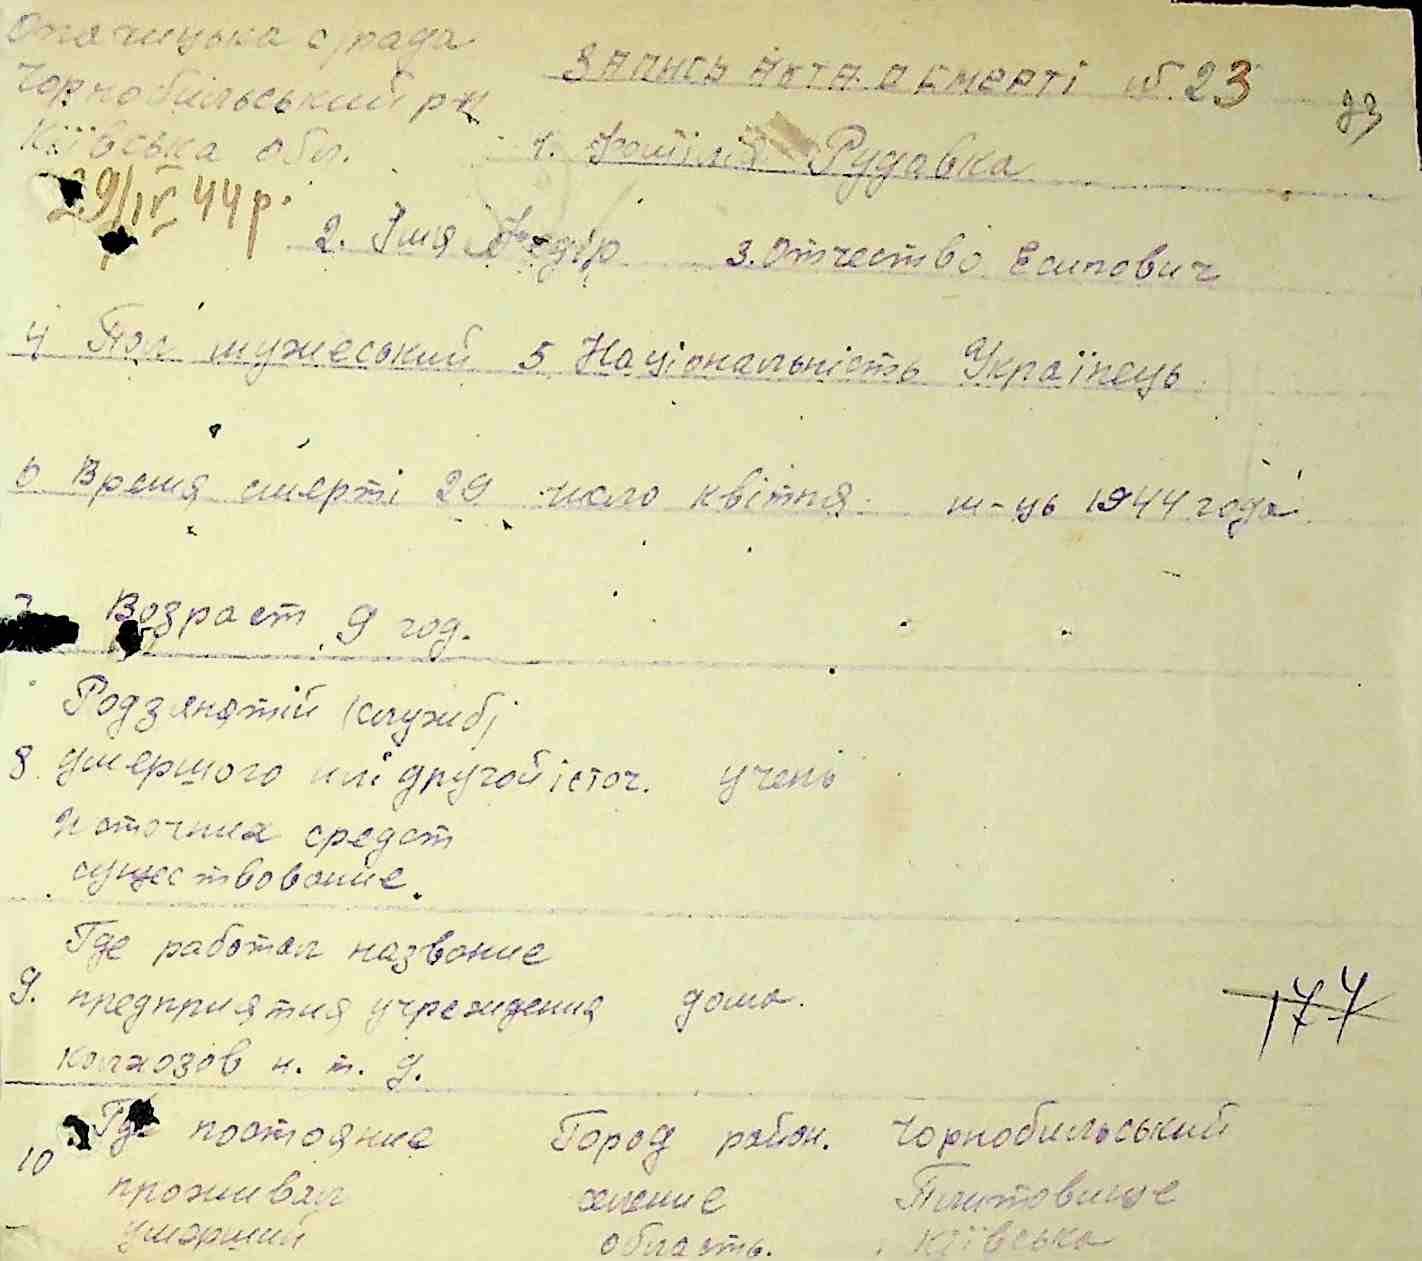 Опачицька с/рада
Чорнобильський р-н
Київська обл.
29/IV 44 р.
Запись акта о смерті № 23
73
1. Фамілія Рудавка
2. Імя Федір 3. Отчество Есипович
4 Пол мужеський 5 Національність Українець
6 Время смерті 29 число квітня м-ць 1944 года
7 Возраст 9 год.
Род занятій (службі
8. умершого илі другой істоч. учень
источник средст
существование.
Где работал название
9. предприятия учреждения дома.
колхозов и. т. д.
177
10 Где постояние Город район. Чорнобильський
проживал селение Плитовище
умерший область. Київська